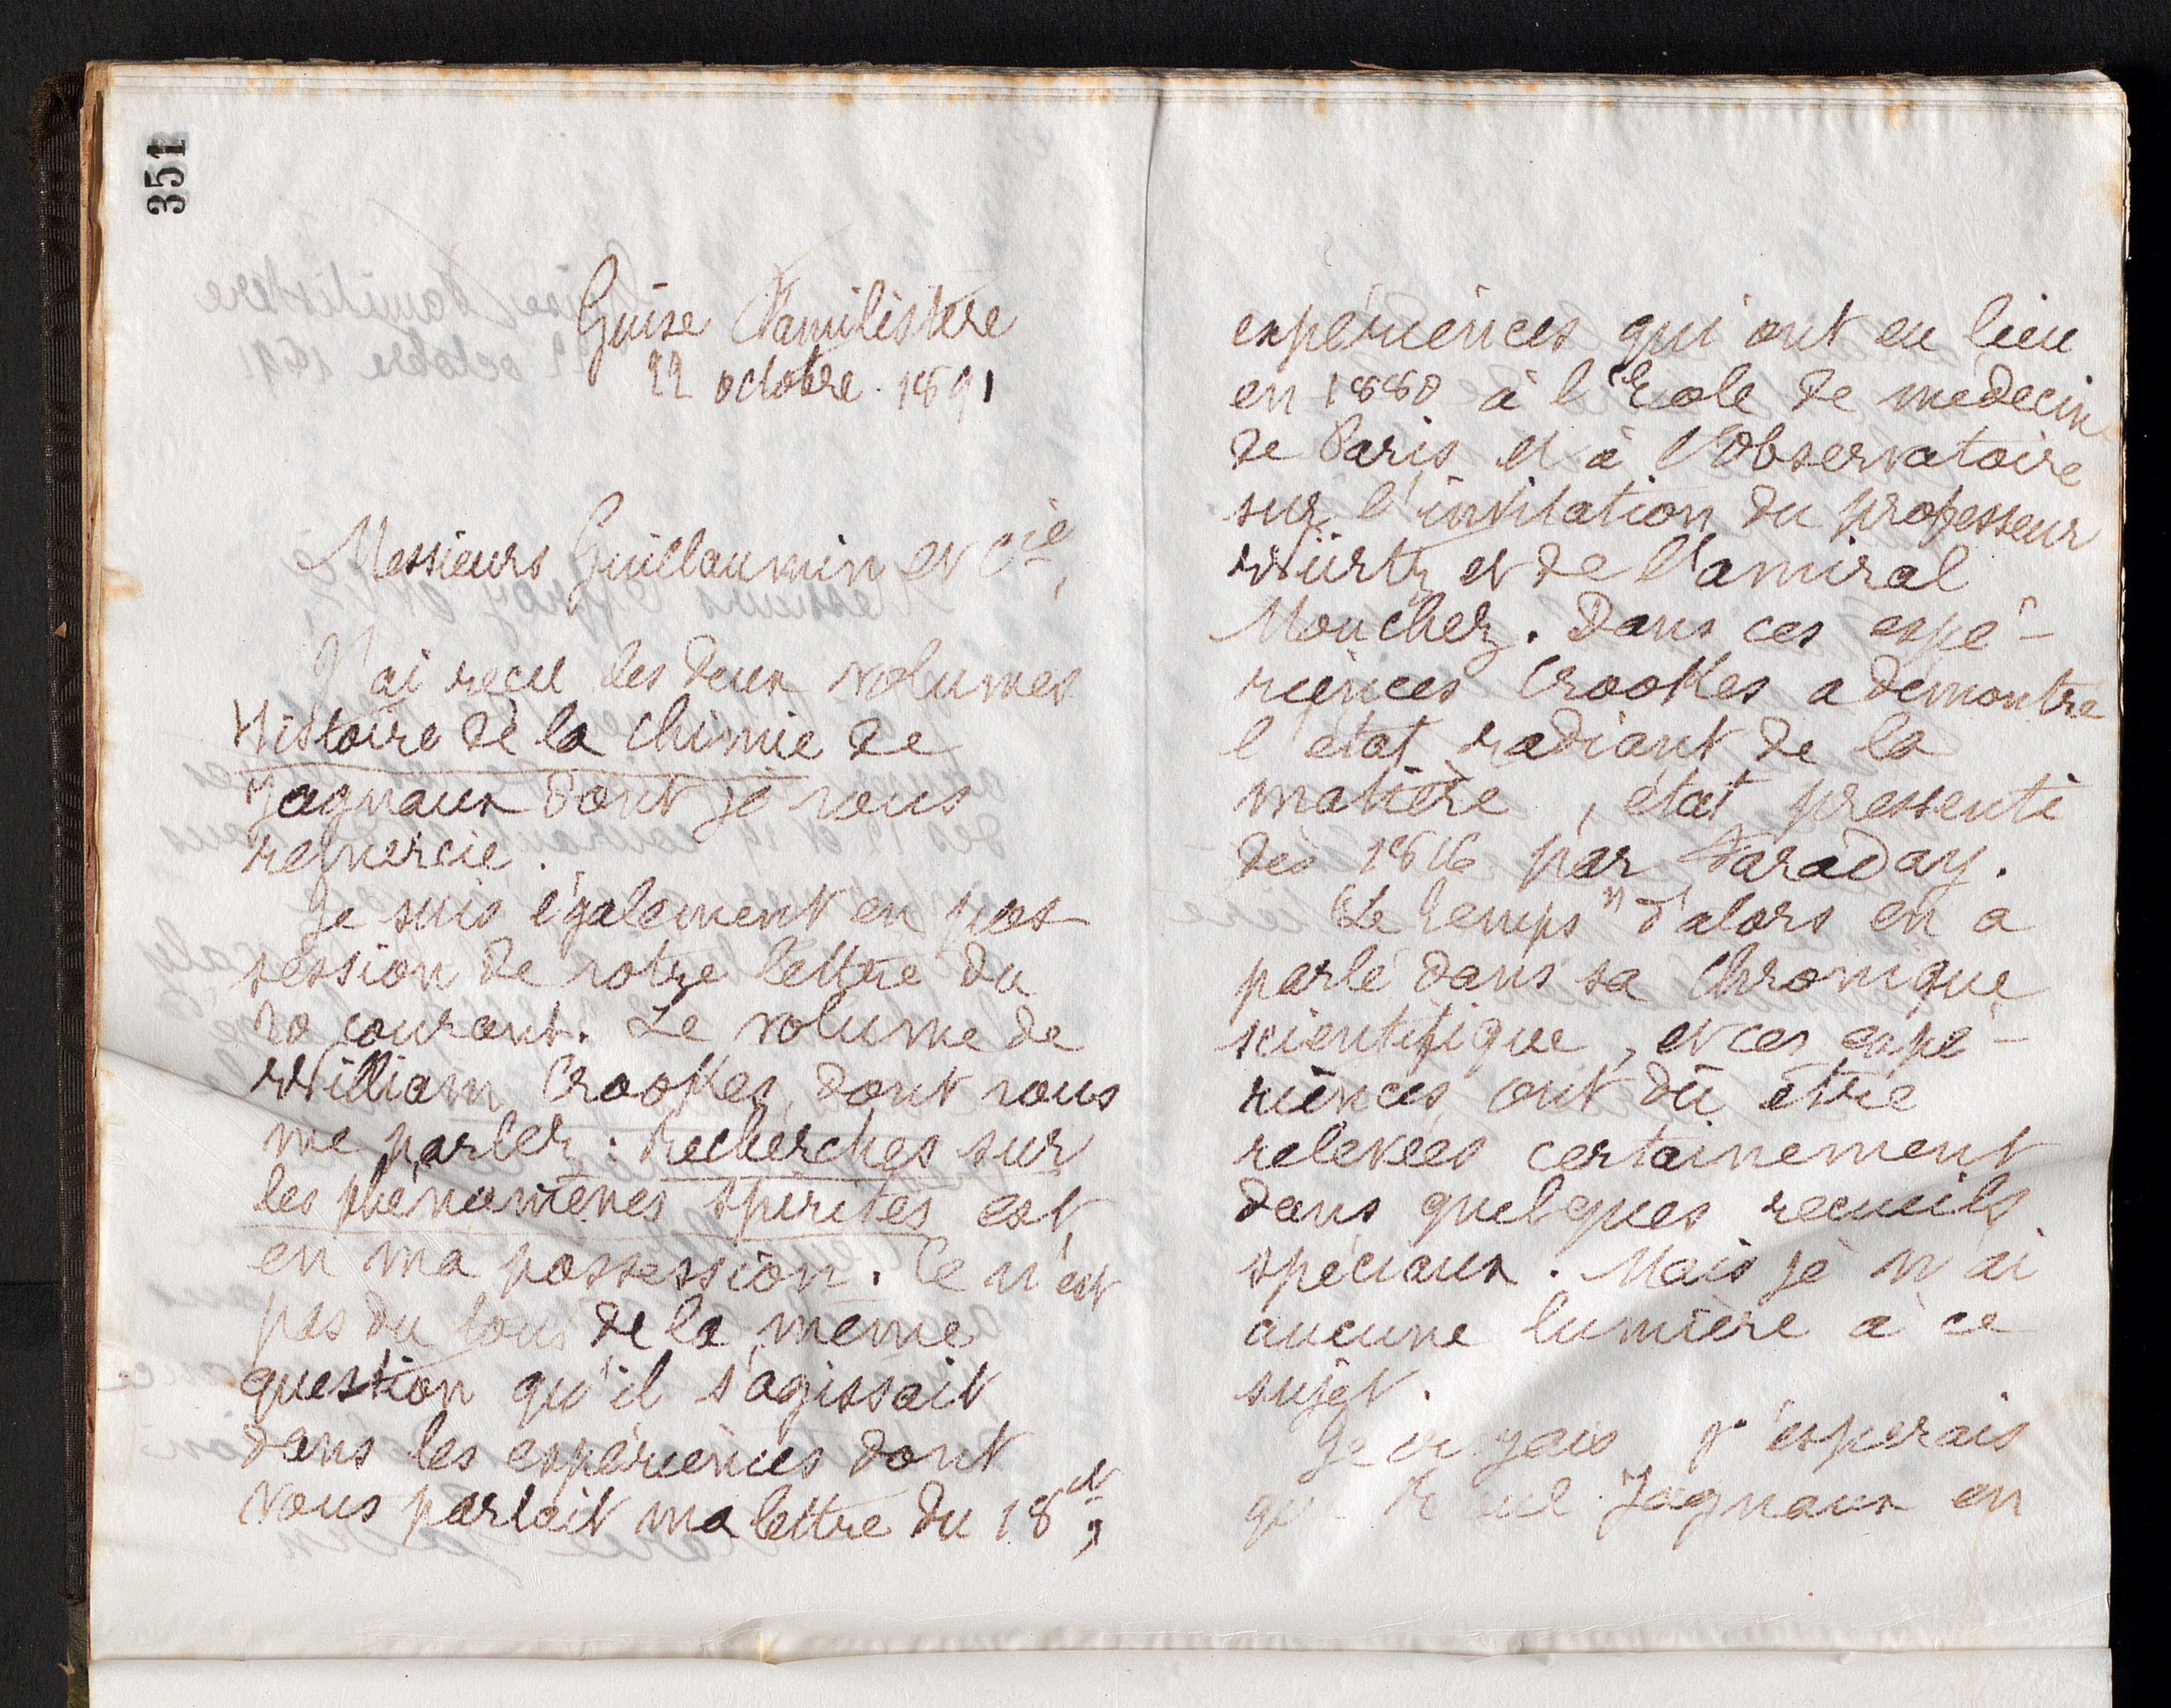 351
Guise Familistère
22 octobre 1891
Messieurs Guillaumin et Cie,
J'ai reçu les deux volumes
Histoire de la Chimie de
Jagnaux dont je vous
remercie.
Je suis également en pos
session de votre lettre du
20 courant. Le volume de
William Crookes, dont vous
me parlez : Recherches sur
les phénomènes spirites est
en ma possession. Ce n'est
pas du tout de la même
question qu'il s'agissait
dans les expériences dont
vous parlait ma lettre du 18 ct,
expériences qui ont eu lieu
en 1880 à l'Ecole de médecin
de Paris et à l'Observatoire
sur l'invitation du professeur
Würtz et de l'amiral
Mouchez. Dans ces expé-
riences Crookes a démontré
l'état radiant de la
matière, état pressenti
dès 1816 par Faraday.
"Le Temps" d'alors en a
parlé dans sa Chronique
scientifique, et ces expé-
riences ont dû être
relevées certainement
dans quelques recueils
spéciaux. Mais je n'ai
aucune lumière à ce
sujet.
Je croyais j'espérais
que Raoul Jagnaux en